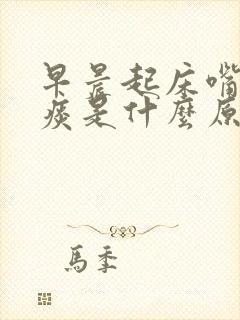 早晨起床嘴
痰是什麼原
馬季